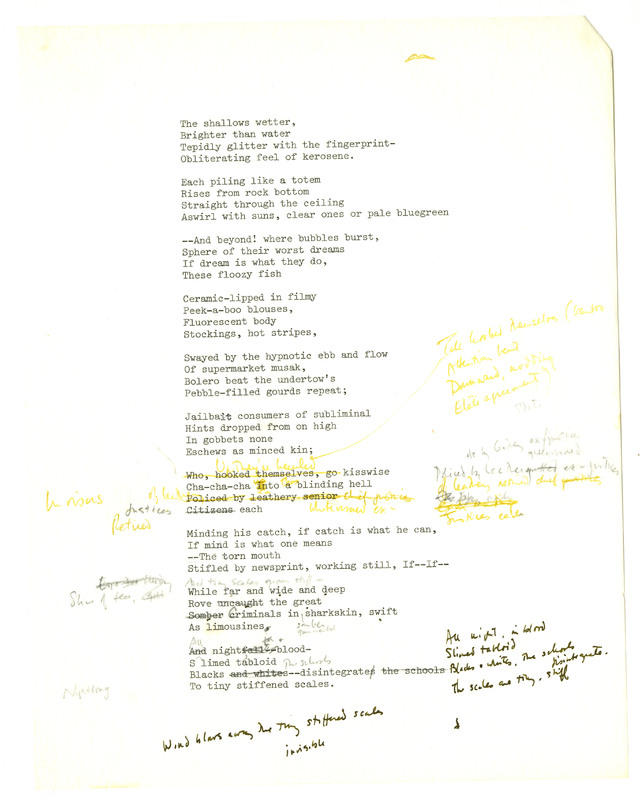 The shallows wetter,
Brighter than water
Tepidly glitter with the fingerprint-
Obliterating feel of kerosene.
Each piling like a totem
Rises from rock bottom
Straight through the ceiling
Aswirl with suns, clear ones or pale bluegreen
--And beyond! where bubbles burst,
Sphere of their worst dreams
If dream is what they do,
These floozy fish
Ceramic-lipped in filmy
Peek-a-boo blouses,
Fluorescent body
Stockings, hot stripes,
Swayed by the hypnotic ebb and flow
Of supermarket musak,
Bolero beat the undertow's
Pebble-filled gourds repeat;
Jailbait consumers of subliminal
Hints dropped from on high
In gobbets none
Eschews as minced kin;
Who, hooked themselves, go kisswise
Cha-cha-cha Into a blinding hell
Policed by leathery senior chief justices
Citizens each
ex-
Justices
Retired
Attention bent
Downward, nodding
Minding his catch, if catch is what he can,
If mind is what one means
--The torn mouth
Stifled by newsprint, working still, If--If--
And tiny scales grown stiff
While far and wide and deep
Rove uncaught the great
Somber Criminals in sharkskin, swift
As limousines,
somber
All
And nightfall--blood-
Slimed tabloid The schools
Blacks and whites--disintegrates the schools
To tiny stiffened scales.
All night, in blood
Slimed tabloid
Blacks + whites, the schools
disintegrate.
The scales are tiny, stiff
Wind blows away the tiny stiffened scales
invisible